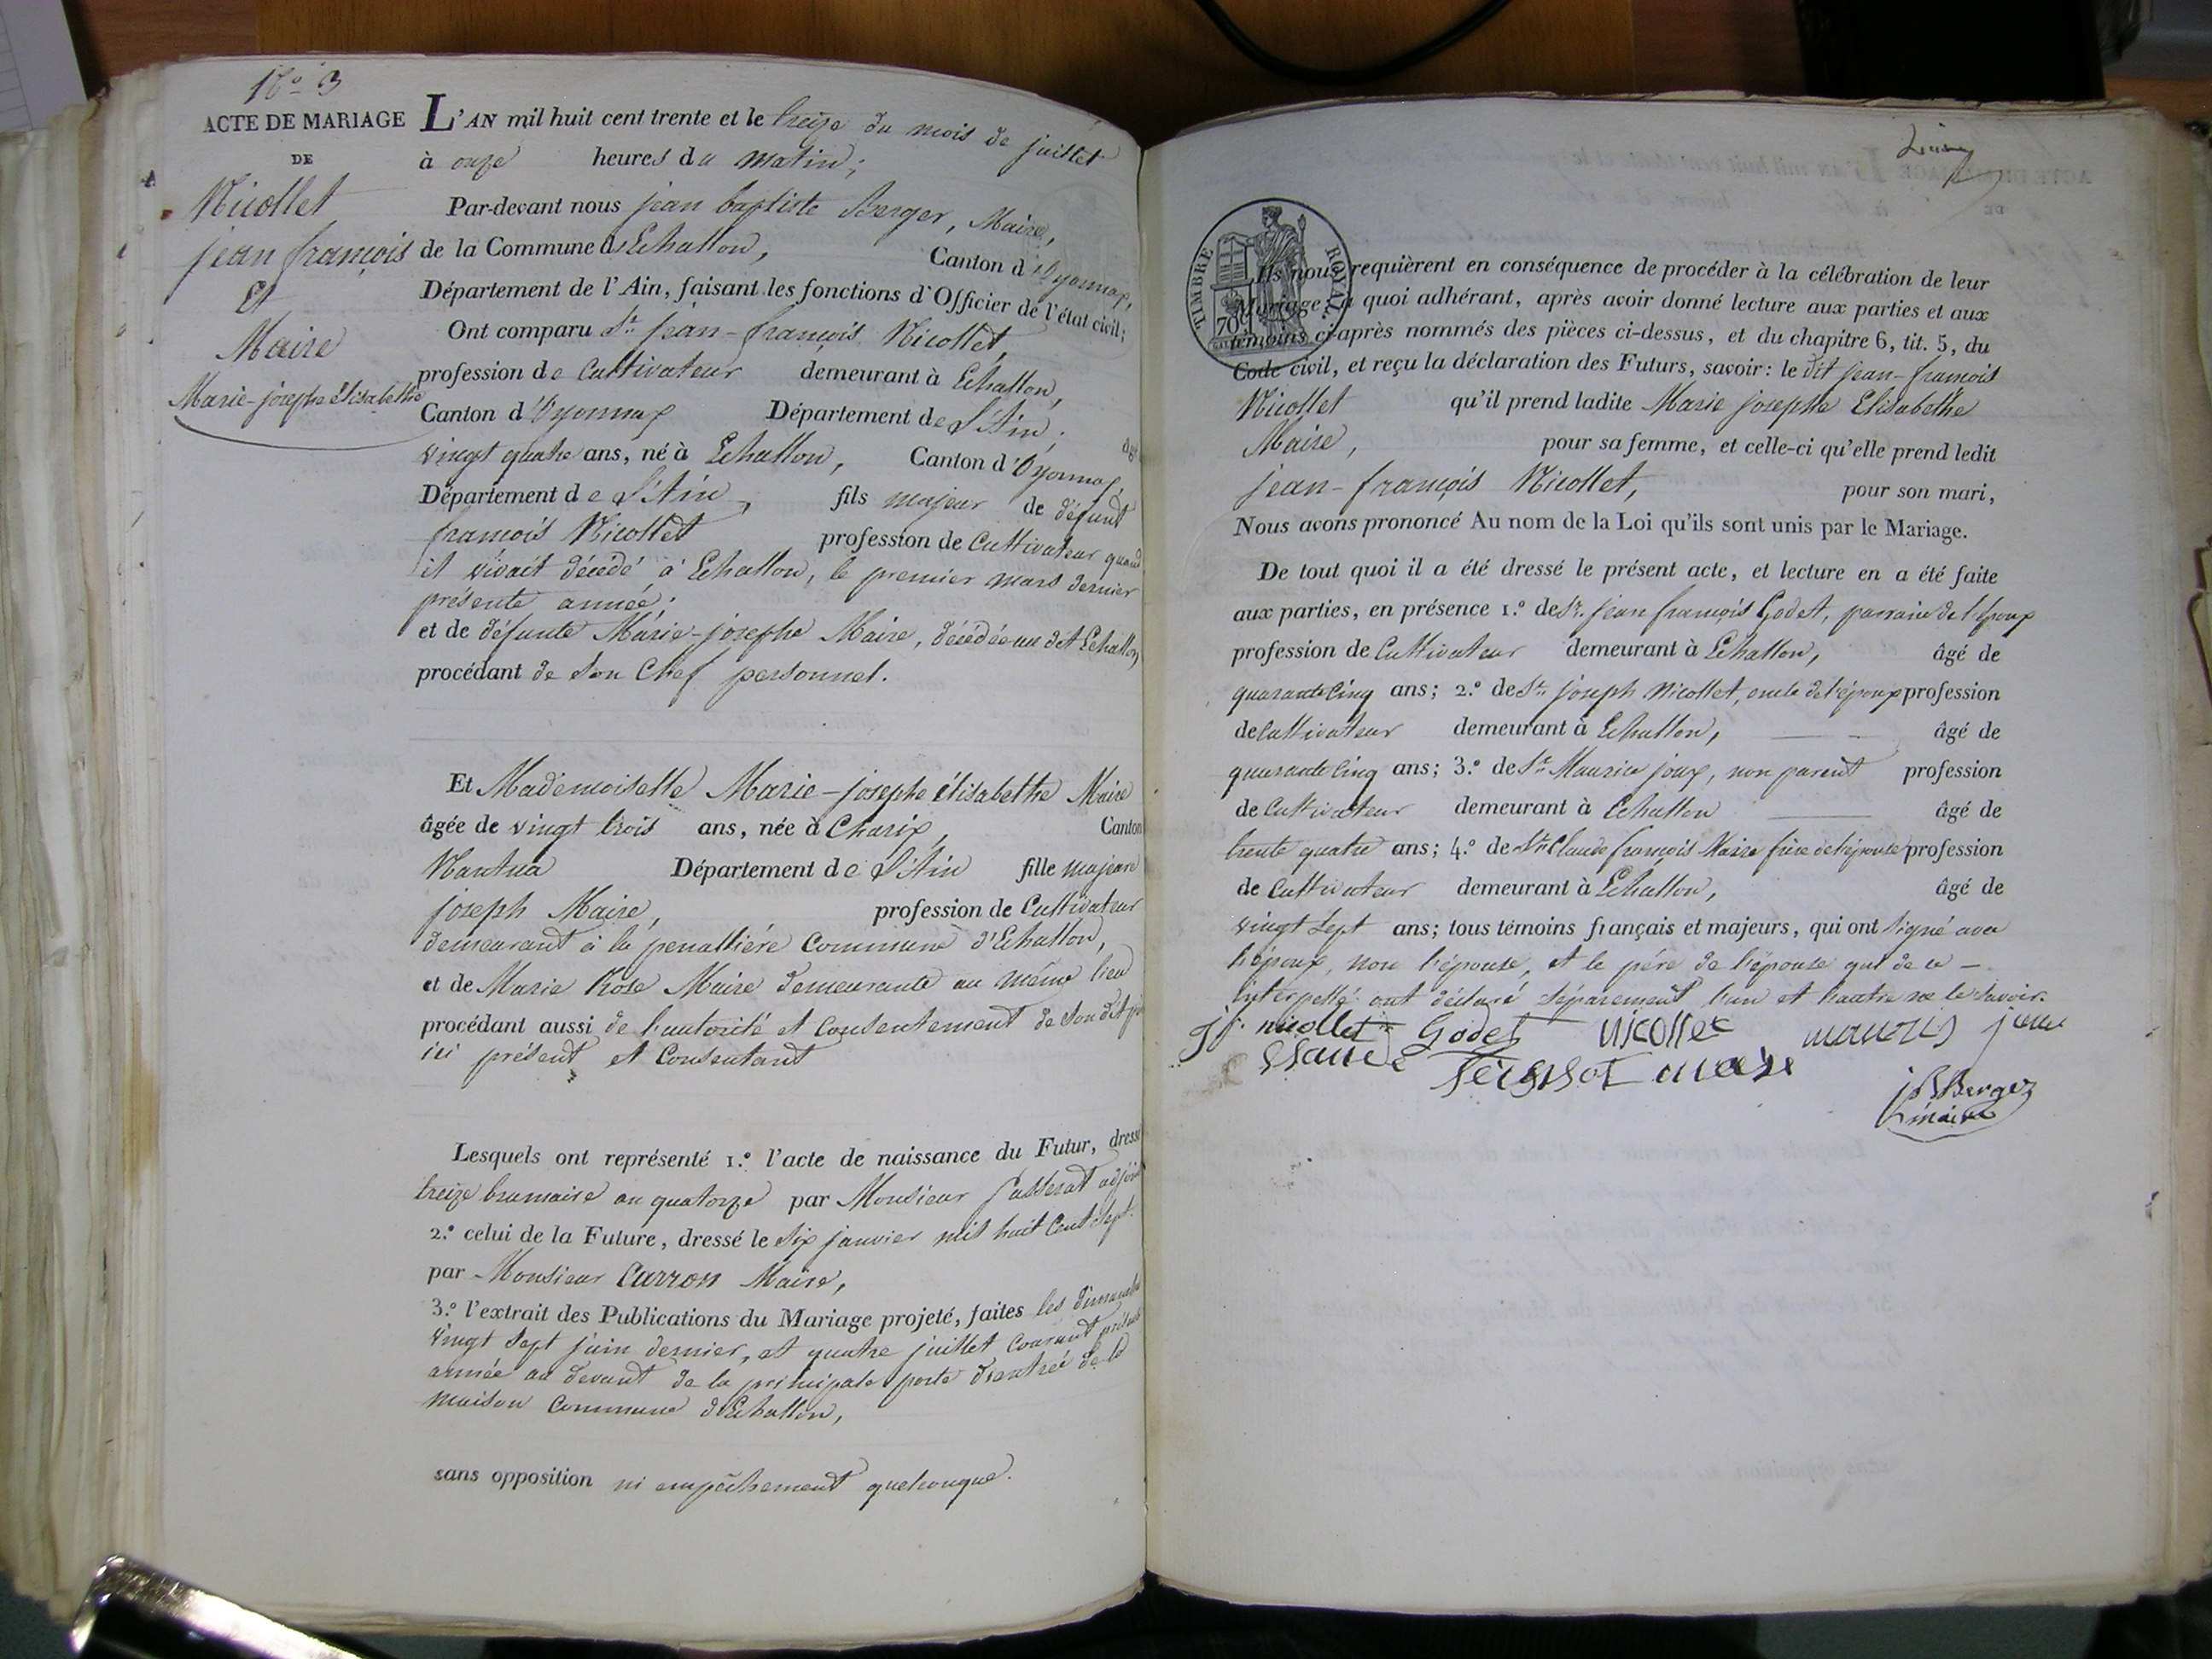 N.º 3
ACTE DE MARIAGE
DE
Nicollet
jean françois
Et
Maire
Marie-josephe élisabethe
L'AN mil huit cent trente et le treize du mois de juillet
à onze heures du matin;
Par-devant nous jean baptiste Berger, Maire,
de la Commune d'Echallon, Canton d'Oyonnax,
Département de l'Ain, faisant les fonctions d'Officier de l'état civil;
Ont comparu Sr. jean-françois Nicollet,
profession de Cultivateur demeurant à Echallon,
Canton d'Oyonnax Département de L'Ain. âgé
vingt quatre ans, né à Echallon, Canton d'Oyonnax,
Département de L'Ain, fils majeur de défunt
françois Nicollet profession de Cultivateur quand
il vivait décédé à Echallon, le premier mars dernier
présente année;
et de défunte Marie-josephe Maire, décédée au dit Echallon,
procédant de son Chef personnel.
Et Mademoiselle Marie-josephe élisabethe Maire
âgée de vingt trois ans, née à Charix, Canton
Nantua Département de L'Ain fille majeure
joseph Maire, profession de Cultivateur
demeurant à la penallière Commune d'Echallon,
et de Marie Rose Maire demeurante au même lieu
procédant aussi de l'autorité et Consentement de son dit
ici présent et Consentant
Lesquels ont représenté 1.º l'acte de naissance du Futur, dressé
treize brumaire an quatorze par Monsieur passerat adjoint
2.º celui de la Future, dressé le six janvier mil huit Cent sept
par Monsieur Carron Maire,
3.º l'extrait des Publications du Mariage projeté, faites les dimanches
vingt sept juin dernier, et quatre juillet Courant présente
année au devant de la principale porte d'entrée de la
maison Commune d'Echallon,
sans opposition ni empêchement quelconque.
TIMBRE ROYAL
70c
Ils nous requièrent en conséquence de procéder à la célébration de leur
Mariage; à quoi adhérant, après avoir donné lecture aux parties et aux
témoins ci-après nommés des pièces ci-dessus, et du chapitre 6, tit. 5, du
Code civil, et reçu la déclaration des Futurs, savoir: le dit jean-françois
Nicollet qu'il prend ladite Marie josephe Elisabethe
Maire, pour sa femme, et celle-ci qu'elle prend ledit
jean-françois Nicollet, pour son mari,
Nous avons prononcé Au nom de la Loi qu'ils sont unis par le Mariage.
De tout quoi il a été dressé le présent acte, et lecture en a été faite
aux parties, en présence 1.º de Sr. jean françois Godet, parrain de l'époux
profession de Cultivateur demeurant à Echallon, âgé de
quarante cinq ans; 2.º de Sr. joseph Nicollet, oncle de l'époux profession
de Cultivateur demeurant à Echallon, âgé de
quarante cinq ans; 3.º de Sr. Maurice joux, non parent profession
de Cultivateur demeurant à Echallon âgé de
trente quatre ans; 4.º de Sr. Claude françois Maire frère de l'épouse profession
de Cultivateur demeurant à Echallon, âgé de
vingt sept ans; tous témoins français et majeurs, qui ont signé avec
l'époux, non l'épouse, et le père de l'épouse qui de ce -
interpellé ont déclaré séparement l'un et l'autre ne le savoir.
jf. nicollet Godet Nicollet mauris joux
Claude maire
j B Berger
maire